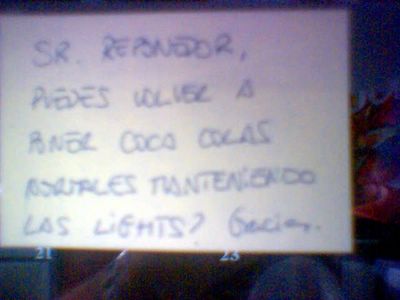 SR. REPONEDOR,
PUEDES VOLVER A
PONER COCA COLAS
NORMALES MANTENIENDO
LAS LIGHTS? Gracias.
21 23